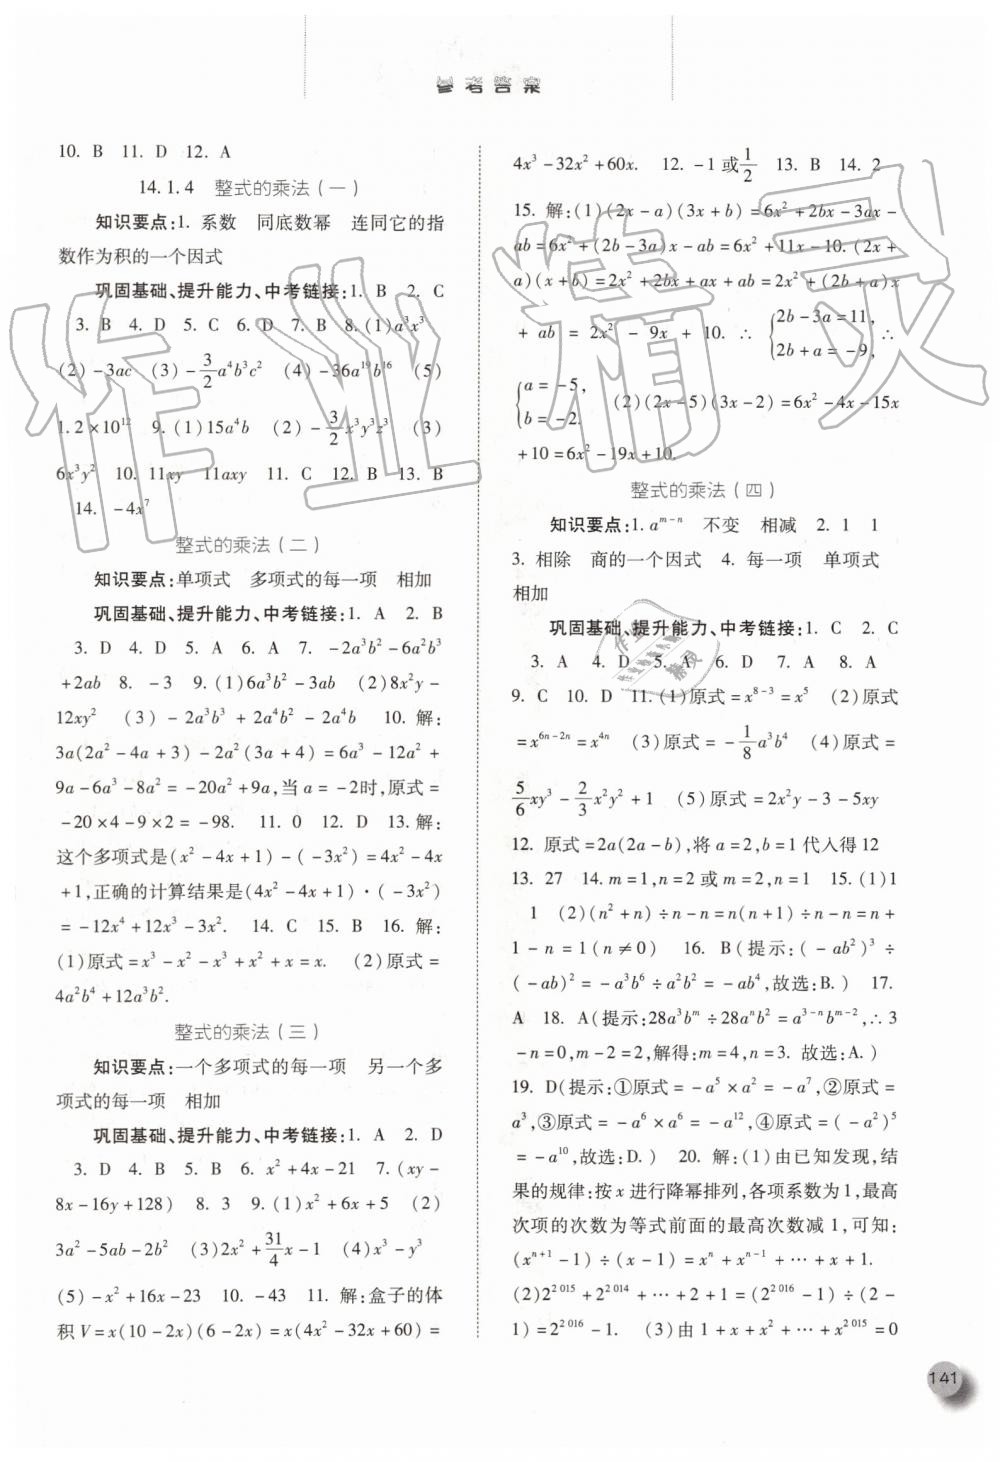 参考答案
10. B 11. D 12. A
14.1.4 整式的乘法(一)
知识要点:1. 系数 同底数幂 连同它的指
数作为积的一个因式
巩固基础、提升能力、中考链接:1. B 2. C
3. B 4. D 5. C 6. D 7. B 8. (1)a³x³
(2)-3ac (3)-3/2a⁴b³c² (4)-36a¹⁹b¹⁶ (5)
1.2×10¹² 9. (1)15a⁴b (2)-3/2x³y³z³ (3)
6x³y² 10. 11xy 11axy 11. C 12. B 13. B
14. -4x⁷
整式的乘法(二)
知识要点:单项式 多项式的每一项 相加
巩固基础、提升能力、中考链接:1. A 2. B
3. D 4. D 5. A 6. A 7. -2a³b²-6a²b³
+2ab 8. -3 9. (1)6a³b²-3ab (2)8x²y-
12xy² (3)-2a³b³+2a⁴b²-2a⁴b 10. 解:
3a(2a²-4a+3)-2a²(3a+4)=6a³-12a²+
9a-6a³-8a²=-20a²+9a,当a=-2时,原式=
-20×4-9×2=-98. 11. 0 12. D 13. 解:
这个多项式是(x²-4x+1)-(-3x²)=4x²-4x
+1,正确的计算结果是(4x²-4x+1)·(-3x²)
=-12x⁴+12x³-3x². 14. C 15. B 16. 解:
(1)原式=x³-x²-x³+x²+x=x. (2)原式=
4a²b⁴+12a³b².
整式的乘法(三)
知识要点:一个多项式的每一项 另一个多
项式的每一项 相加
巩固基础、提升能力、中考链接:1. A 2. D
3. D 4. B 5. B 6. x²+4x-21 7. (xy-
8x-16y+128) 8. 3 9. (1)x²+6x+5 (2)
3a²-5ab-2b² (3)2x²+31/4x-1 (4)x³-y³
(5)-x²+16x-23 10. -43 11. 解:盒子的体
积V=x(10-2x)(6-2x)=x(4x²-32x+60)=
4x³-32x²+60x. 12. -1或1/2 13. B 14. 2
15. 解:(1)(2x-a)(3x+b)=6x²+2bx-3ax-
ab=6x²+(2b-3a)x-ab=6x²+11x-10. (2x+
a)(x+b)=2x²+2bx+ax+ab=2x²+(2b+a)x
+ab=2x²-9x+10. ∴ {2b-3a=11, 2b+a=-9, ∴
{a=-5, b=-2. (2)(2x-5)(3x-2)=6x²-4x-15x
+10=6x²-19x+10.
整式的乘法(四)
知识要点:1. aᵐ⁻ⁿ 不变 相减 2. 1 1
3. 相除 商的一个因式 4. 每一项 单项式
相加
巩固基础、提升能力、中考链接:1. C 2. C
3. A 4. D 5. A 6. D 7. A 8. A
9. C 10. D 11. (1)原式=x⁸⁻³=x⁵ (2)原式
=x⁶ⁿ⁻²ⁿ=x⁴ⁿ (3)原式=-1/8a³b⁴ (4)原式=
5/6xy³-2/3x²y²+1 (5)原式=2x²y-3-5xy
12. 原式=2a(2a-b),将a=2,b=1代入得12
13. 27 14. m=1,n=2或m=2,n=1 15. (1)1
1 (2)(n²+n)÷n-n=n(n+1)÷n-n=n+
1-n=1(n≠0) 16. B(提示:(-ab²)³÷
(-ab)²=-a³b⁶÷a²b²=-ab⁴,故选:B.) 17.
A 18. A(提示:28a³bᵐ÷28aⁿb²=a³⁻ⁿbᵐ⁻²,∴3
-n=0,m-2=2,解得:m=4,n=3. 故选:A.)
19. D(提示:①原式=-a⁵×a²=-a⁷,②原式=
a³,③原式=-a⁶×a⁶=-a¹²,④原式=(-a²)⁵
=-a¹⁰,故选:D.) 20. 解:(1)由已知发现,结
果的规律:按x进行降幂排列,各项系数为1,最高
次项的次数为等式前面的最高次数减1,可知:
(xⁿ⁺¹-1)÷(x-1)=xⁿ+xⁿ⁻¹+…+x+1.
(2)2²⁰¹⁵+2²⁰¹⁴+…+2+1=(2²⁰¹⁶-1)÷(2-
1)=2²⁰¹⁶-1. (3)由1+x+x²+…+x²⁰¹⁵=0
141
作业精灵